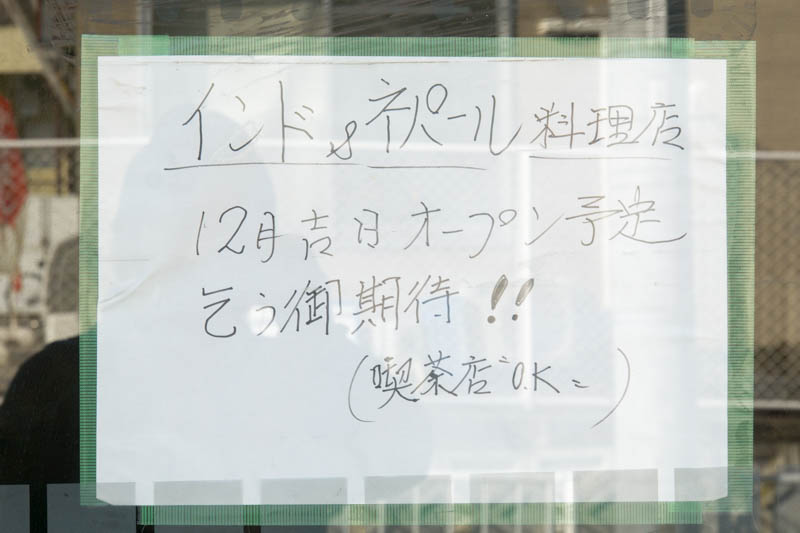 インド&ネパール料理店
12月吉日オープン予定
乞う御期待!!
(喫茶店"O.K=)